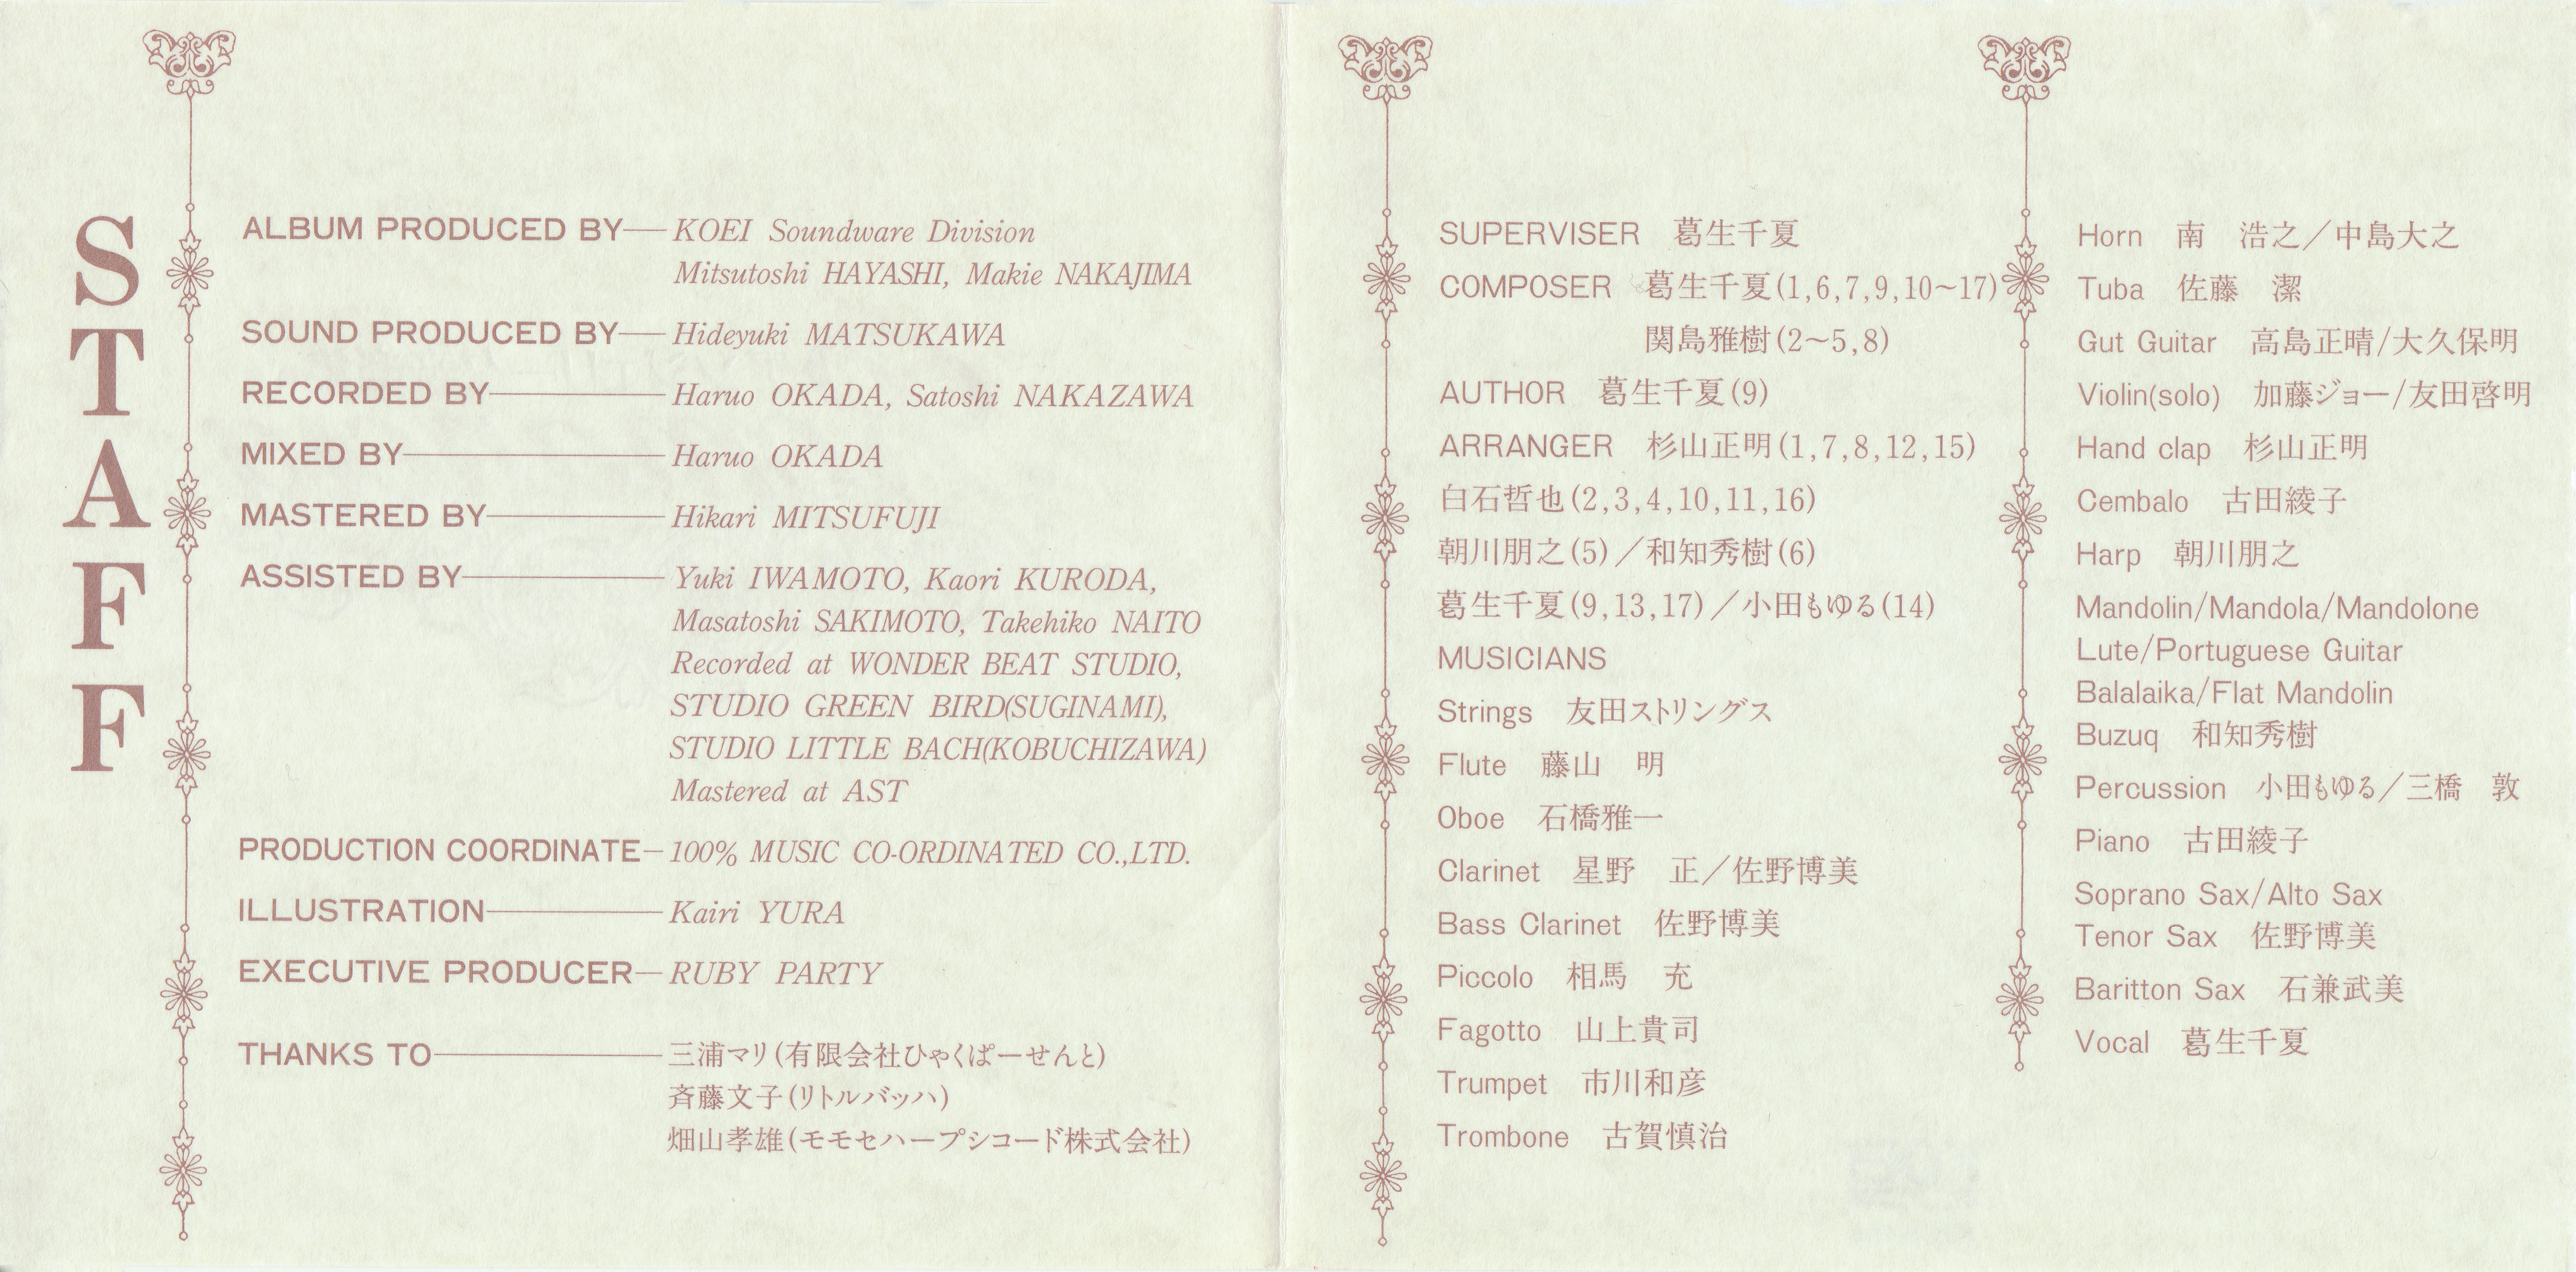 STAFF
ALBUM PRODUCED BY KOEI Soundware Division
Mitsutoshi HAYASHI, Makie NAKAJIMA
SOUND PRODUCED BY Hideyuki MATSUKAWA
RECORDED BY Haruo OKADA, Satoshi NAKAZAWA
MIXED BY Haruo OKADA
MASTERED BY Hikari MITSUFUJI
ASSISTED BY Yuki IWAMOTO, Kaori KURODA,
Masatoshi SAKIMOTO, Takehiko NAITO
Recorded at WONDER BEAT STUDIO,
STUDIO GREEN BIRD(SUGINAMI),
STUDIO LITTLE BACH(KOBUCHIZAWA)
Mastered at AST
PRODUCTION COORDINATE 100% MUSIC CO-ORDINATED CO.,LTD.
ILLUSTRATION Kairi YURA
EXECUTIVE PRODUCER RUBY PARTY
THANKS TO 三浦マリ(有限会社ひゃくぱーせんと)
斉藤文子(リトルバッハ)
畑山孝雄(モモセハープシコード株式会社)
SUPERVISER 葛生千夏
COMPOSER 葛生千夏(1,6,7,9,10~17)
関島雅樹(2~5,8)
AUTHOR 葛生千夏(9)
ARRANGER 杉山正明(1,7,8,12,15)
白石哲也(2,3,4,10,11,16)
朝川朋之(5)／和知秀樹(6)
葛生千夏(9,13,17)／小田もゆる(14)
MUSICIANS
Strings 友田ストリングス
Flute 藤山 明
Oboe 石橋雅一
Clarinet 星野 正／佐野博美
Bass Clarinet 佐野博美
Piccolo 相馬 充
Fagotto 山上貴司
Trumpet 市川和彦
Trombone 古賀慎治
Horn 南 浩之／中島大之
Tuba 佐藤 潔
Gut Guitar 高島正晴/大久保明
Violin(solo) 加藤ジョー/友田啓明
Hand clap 杉山正明
Cembalo 古田綾子
Harp 朝川朋之
Mandolin/Mandola/Mandolone
Lute/Portuguese Guitar
Balalaika/Flat Mandolin
Buzuq 和知秀樹
Percussion 小田もゆる／三橋 敦
Piano 古田綾子
Soprano Sax/Alto Sax
Tenor Sax 佐野博美
Baritton Sax 石兼武美
Vocal 葛生千夏